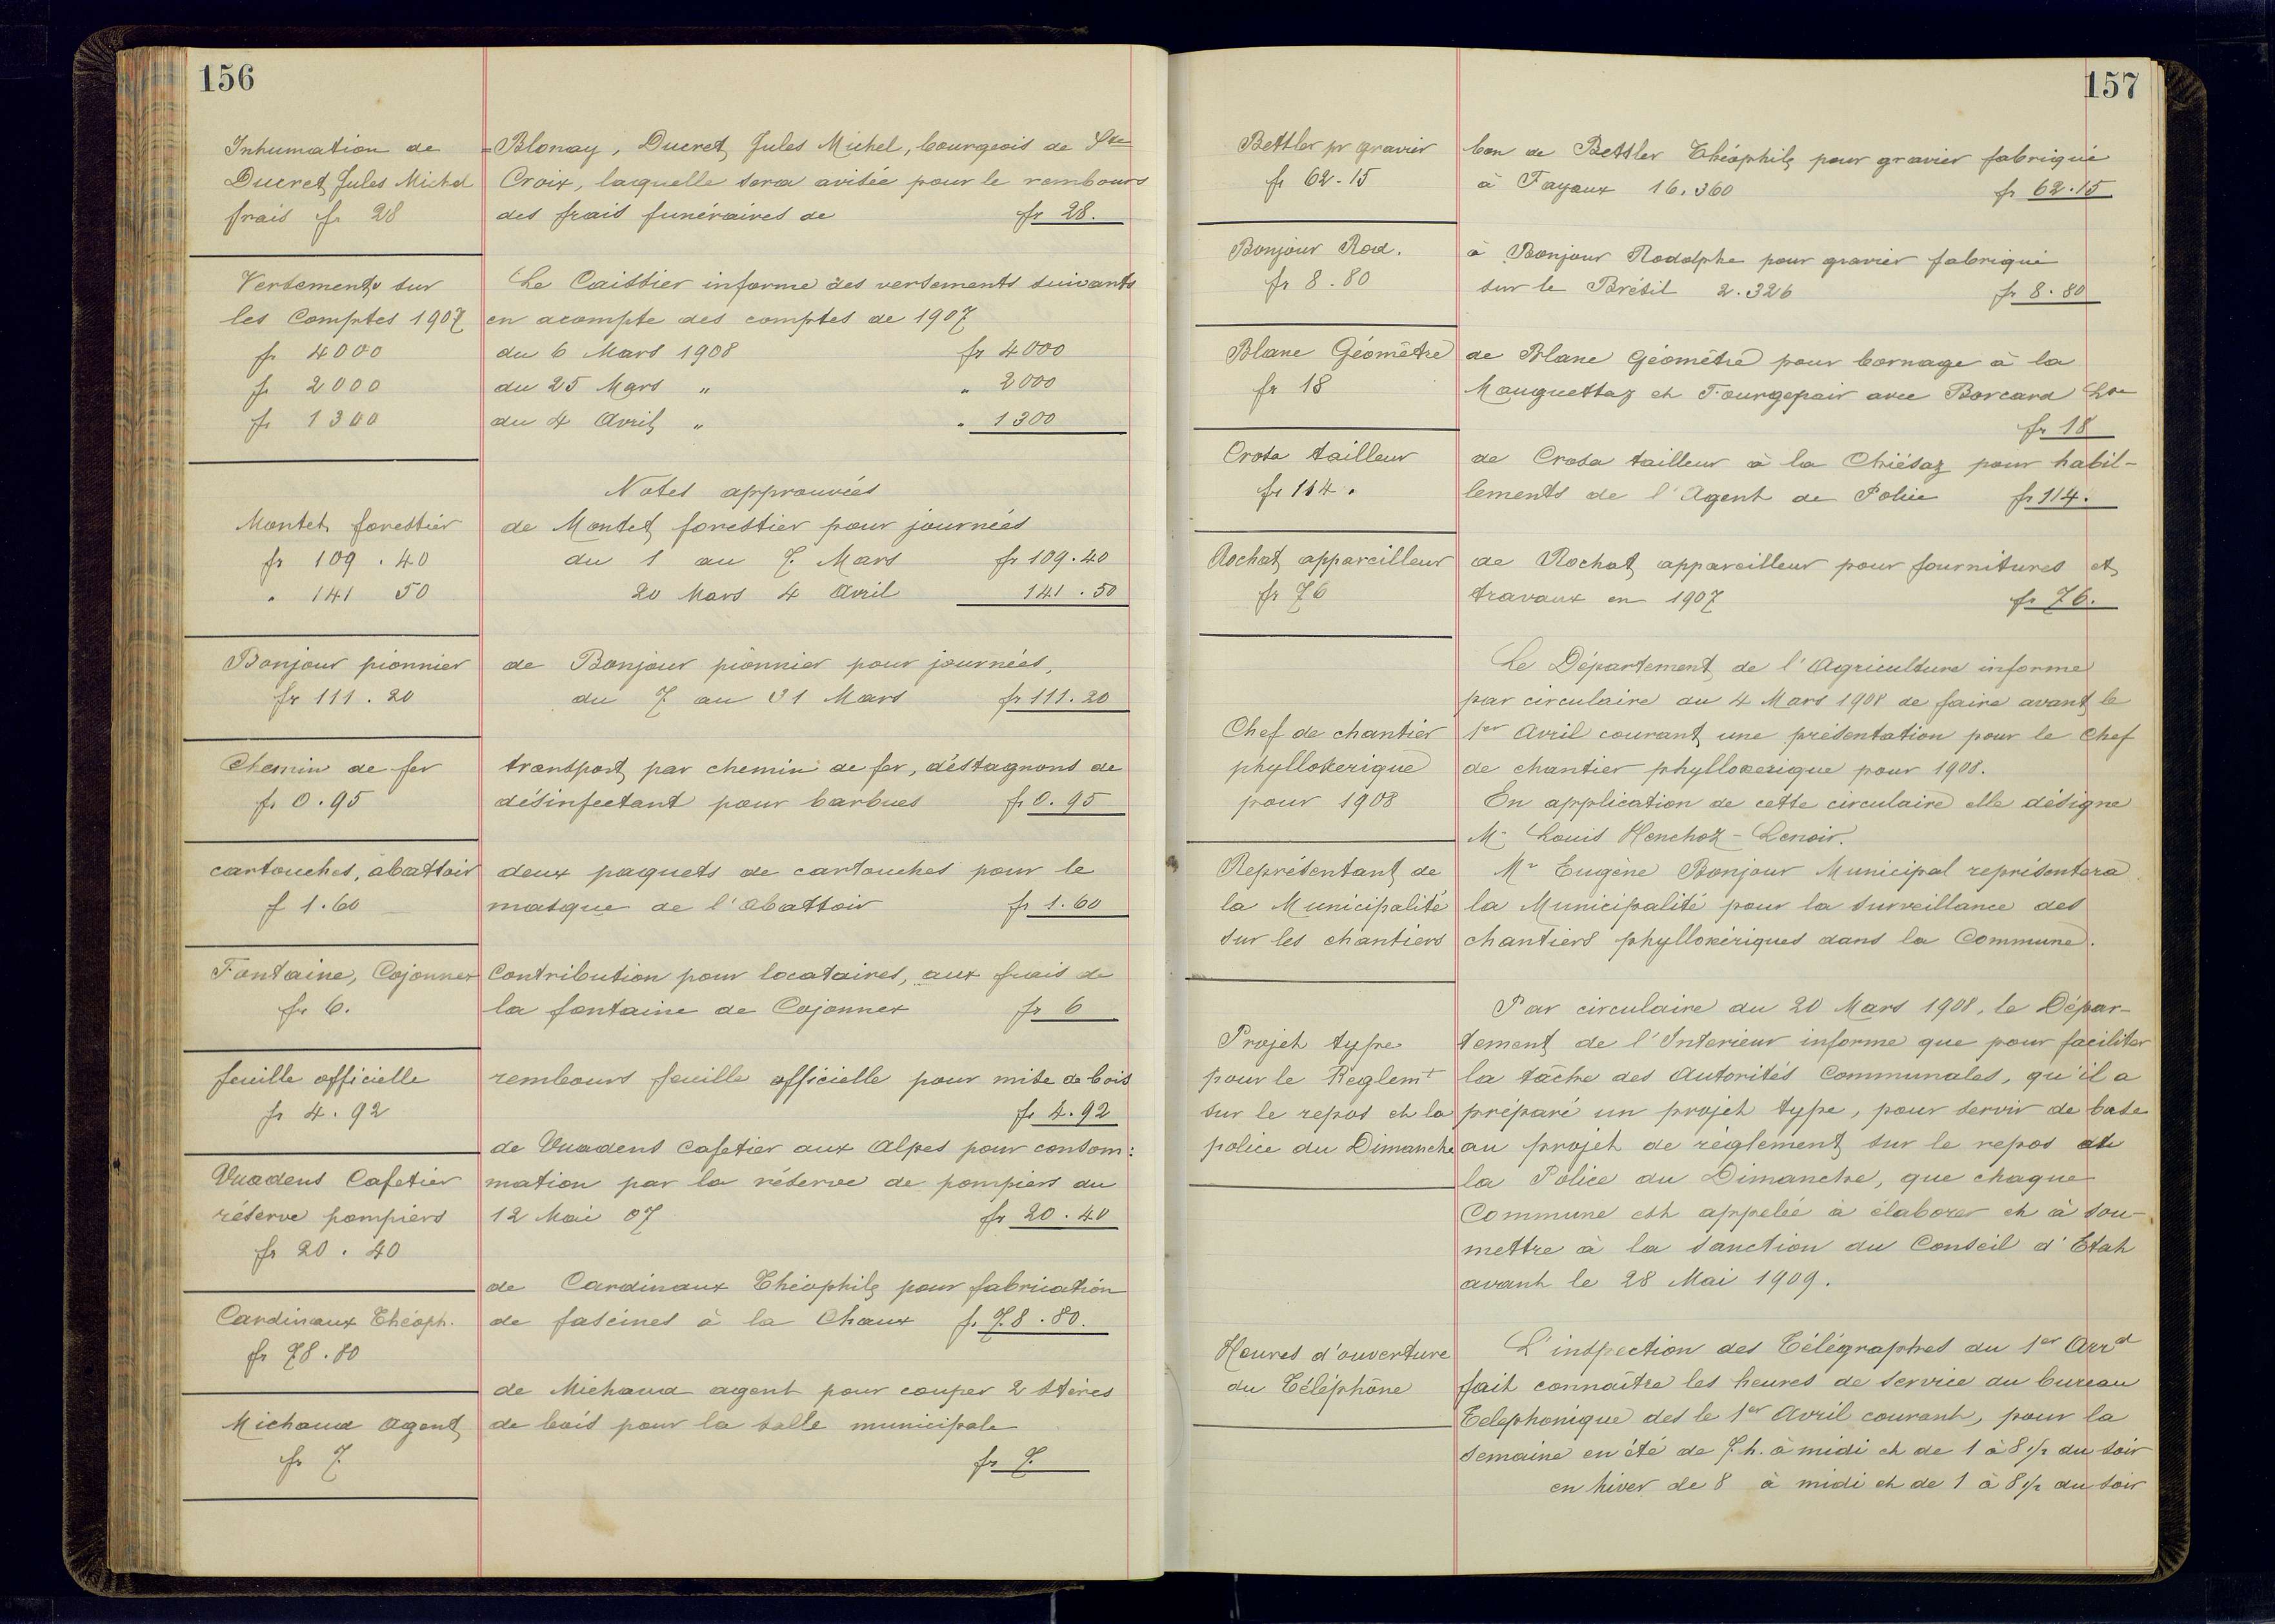 156
Inhumation de
Ducret Jules Michel
frais fr 28
= Blonay, Ducret Jules Michel, bourgeois de Ste
Croix, laquelle sera avisée pour le rembours
des frais funéraires de fr 28.
Versements sur
les Comptes 1907
fr 4000
fr 2000
fr 1300
Le Caissier informe des versements suivants
en acompte des comptes de 1907
du 6 Mars 1908 fr 4000
du 25 Mars " " 2000
du 4 Avril " " 1300
Notes approuvées
Montet forestier
fr 109.40
" 141 50
de Montet forestier pour journées
du 1 au 7. Mars fr 109.40
20 Mars 4 Avril 141.50
Bonjour pionnier
fr 111.20
de Bonjour pionnier pour journées,
du 7 au 31 Mars fr 111.20
Chemin de fer
fr 0.95
transport par chemin de fer, déstagnons de
désinfectant pour barbues fr 0.95
cartouches, abattoir
f 1.60
deux paquets de cartouches pour le
masque de l'abattoir fr 1.60
Fontaine, Cojonnex
fr 6.
Contribution pour locataires, aux frais de
la fontaine de Cojonnex fr 6
feuille officielle
fr 4.92
rembours feuille officielle pour mise de bois
fr 4.92
Vuadens Cafetier
réserve pompiers
fr 20.40
de Vuadens cafetier aux Alpes pour consom:
mation par la réserve de pompiers du
12 Mai 07 fr 20.40
Cardinaux Théoph.
fr 78.80
de Cardinaux Théophile pour fabrication
de fascines à la Chaux f. 78.80.
Michaud Agent
fr 7
de Michaud agent pour couper 2 stères
de bois pour la salle municipale
fr 7.
157
Bettler pr gravier
fr 62.15
bon de Bettler Théophile pour gravier fabriqué
à Fayaux 16.360 fr 62.15
Bonjour Rod.
fr 8.80
à Bonjour Rodolphe pour gravier fabriqué
sur le Brésil 2.326 fr 8.80
Blanc Géomètre
fr 18
de Blanc Géomètre pour bornage à la
Mauguettaz et Fourgepair avec Borcard Lse
fr 18
Crosa tailleur
fr 114.
de Crosa tailleur à la Chiésaz pour habil-
lements de l'Agent de Police fr 114.
Rochat appareilleur
fr 76
de Rochat appareilleur pour fournitures et
travaux en 1907 fr 76.
Le Département de l'Agriculture informe
par circulaire du 4 Mars 1908 de faire avant le
Chef de chantier
phylloxerique
pour 1908
1er Avril courant une présentation pour le Chef
de chantier phylloxerique pour 1908.
En application de cette circulaire elle désigne
Mr Louis Henchoz-Lenoir.
Représentant de
la Municipalité
sur les chantiers
Mr Eugène Bonjour Municipal représentera
la Municipalité pour la surveillance des
chantiers phylloxériques dans la Commune.
Par circulaire du 20 Mars 1908, le Dépar-
Projet type
pour le Reglemt
sur le repos et la
police du Dimanche
tement de l'Interieur informe que pour faciliter
la tâche des Autorités Communales, qu'il a
préparé un projet type, pour servir de base
au projet de réglement sur le repos et
la Police du Dimanche, que chaque
Commune est appelée à élaborer et à sou-
mettre à la sanction du Conseil d'Etat
avant le 28 Mai 1909.
Heures d'ouverture
du Téléphône
L'inspection des Télégraphes du 1er Arrd
fait connaître les heures de service du bureau
Telephonique des le 1er Avril courant, pour la
semaine en été de 7.h. à midi et de 1 à 8 1/2 du soir
en hiver de 8 à midi et de 1 à 8 1/2 du soir